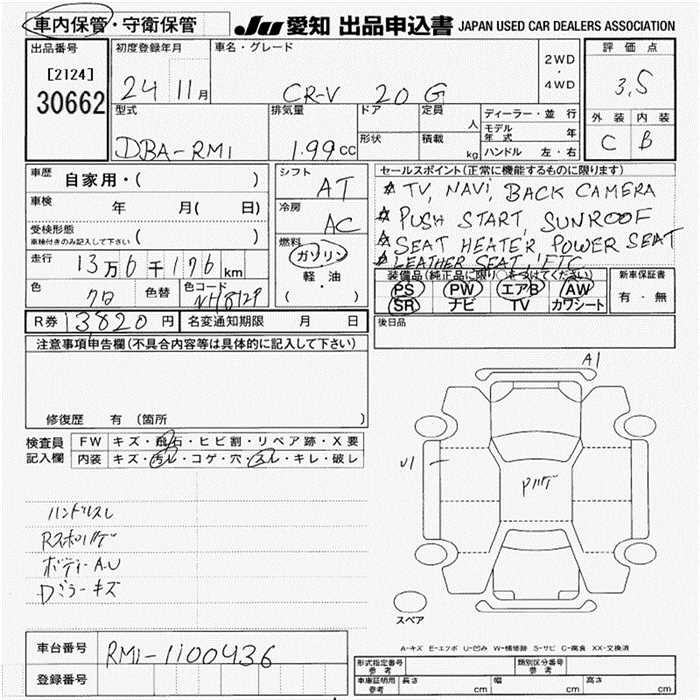 車内保管・守衛保管 JU 愛知 出品申込書 JAPAN USED CAR DEALERS ASSOCIATION
出品番号 初度登録年月 車名・グレード 2WD・4WD 評価点
[2124] 30662 24 11月 CR-V 20G 3.5
型式 排気量 ドア 定員 人 ディーラー・並行 外装 内装
DBA-RM1 1.99cc 形状 積載 kg モデル年式 年 C B
ハンドル 左・右
車歴 自家用・( ) シフト AT セールスポイント(正常に機能するものに限ります)
車検 年 月( 日) 冷房 AC ☆TV, NAVI, BACK CAMERA
受検形態 ( ) ☆PUSH START, SUNROOF
車検付きのみ記入して下さい 燃料 ☆SEAT HEATER POWER SEAT
走行 13万6千176km ガソリン ☆LEATHER SEAT, ETC
軽・油 装備品(純正品に限り)○をつけてください) 新車保証書
色 クロ 色替 色コード ( ) PS PW エアB AW 有・無
SR ナビ TV カワシート
R券 13,820円 名変通知期限 月 日 後日品
注意事項申告欄(不具合内容等は具体的に記入して下さい)
A1
修復歴 有 (箇所 )
検査員記入欄 FW キズ・飛石・ヒビ割・リペア跡・X要
内装 キズ・汚レ・コゲ・穴・スレ・キレ・破レ
U1
ハンドルスレ
ボディーA.U
Dミラーキズ
スペア
A-キズ E-エクボ U-凹み W-補修跡 S-サビ C-腐食 XX-交換済
車台番号 RM1-1100436
登録番号
形式指定番号 参考 類別区分番号 参考
車庫証明用 参考 長さ cm 幅 cm 高さ cm